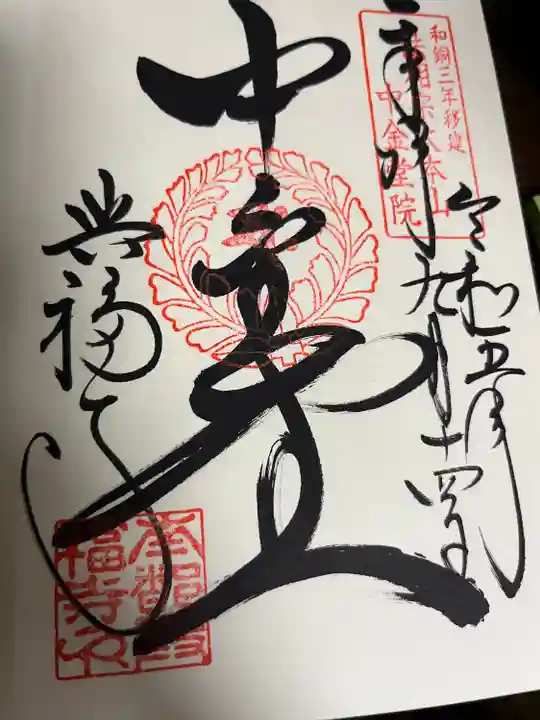 和銅三年移建
法相宗大本山
中金堂院
奉拝
令和五年
九月十四日
中金堂
興福寺